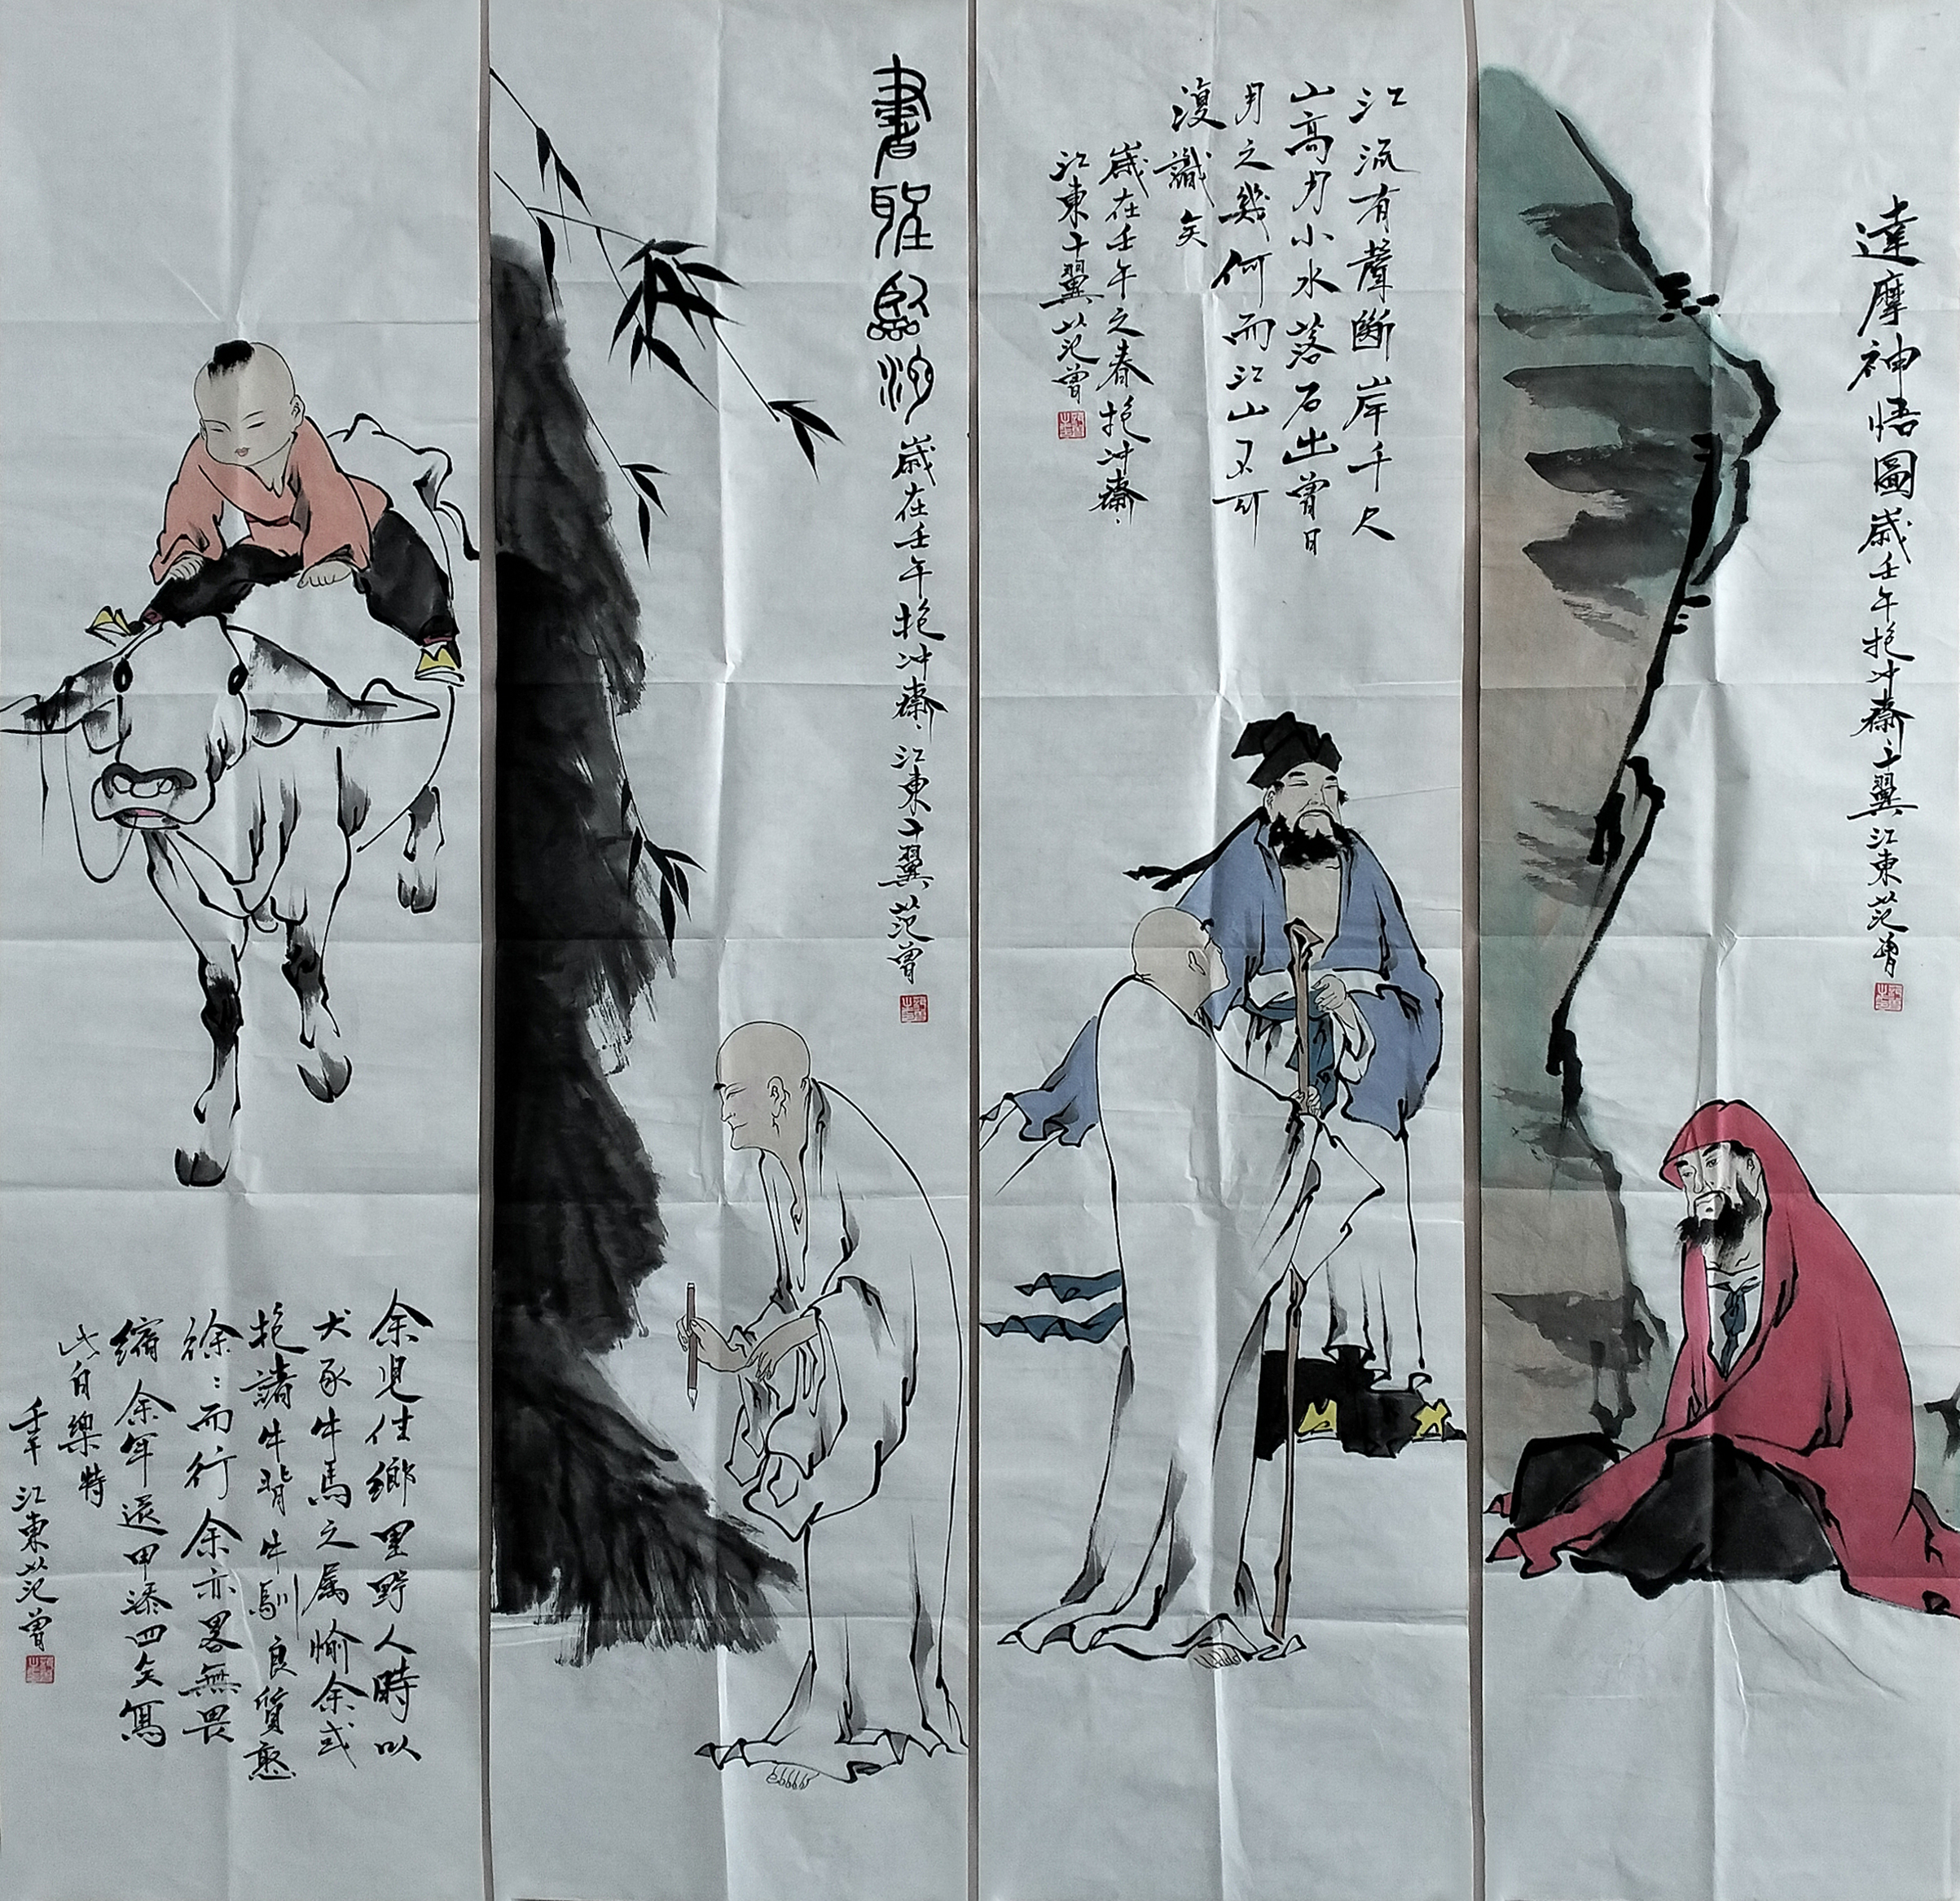 達摩神悟圖歲壬午抱冲齋十翼江東范曾
江流有聲斷岸千尺
山高月小水落石出曾日
月之幾何而江山不可
復識矣
歲在壬午之春抱冲齋
江東十翼范曾
書聖臨池歲在壬午抱冲齋江東十翼范曾
余兒住鄉里野人時以
犬豕牛馬之属愉余或
抱諸牛背牛馴良質憨
徐〻而行余亦畧無畏
縮余年還甲添四矣寫
此自樂特
壬午江東范曾